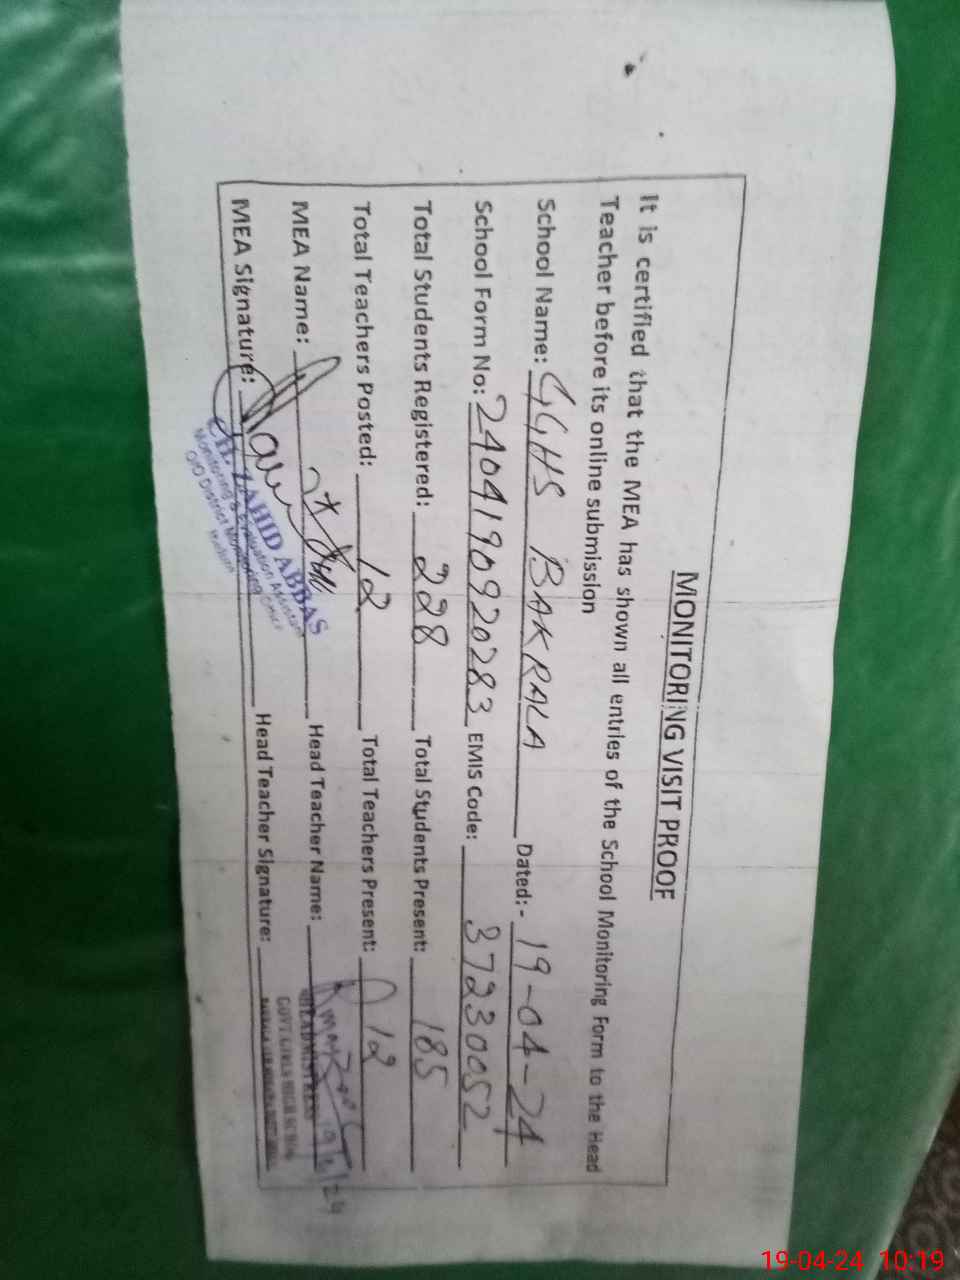 MONITORING VISIT PROOF
It is certified that the MEA has shown all entries of the School Monitoring Form to the Head
Teacher before its online submission
School Name: GGHS BAKRALA Dated:- 19-04-24
School Form No: 2404190920283 EMIS Code: 37230052
Total Students Registered: 228 Total Students Present: 185
Total Teachers Posted: 12 Total Teachers Present: 12
MEA Name: Head Teacher Name:
MEA Signature: Head Teacher Signature:
CH. ZAHID ABBAS
Monitoring & Evaluation Assistant
O/O District Monitoring Officer
HEADMISTRESS
GOVT. GIRLS HIGH SCHOOL
19-04-24 10:19